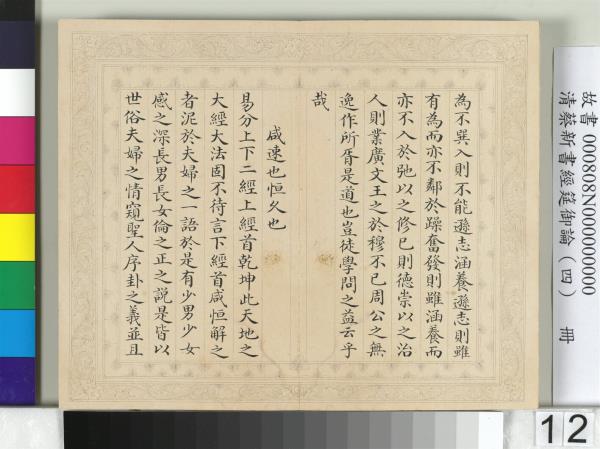 為不巽入則不能遜志涵養遜志則雖
有為而亦不鄰於躁奮發則雖涵養而
亦不入於弛以之修己則德崇以之治
人則業廣文王之於穆不已周公之無
逸作所胥是道也豈徒學問之益云乎
哉
咸速也恒久也
易分上下二經上經首乾坤此天地之
大經大法固不待言下經首咸恒解之
者泥於夫婦之一語於是有少男少女
感之深長男長女倫之正之說是皆以
世俗夫婦之情窺聖人序卦之義並且
故書 000808N000000000
清蔡新書經筵御論（四） 冊
12